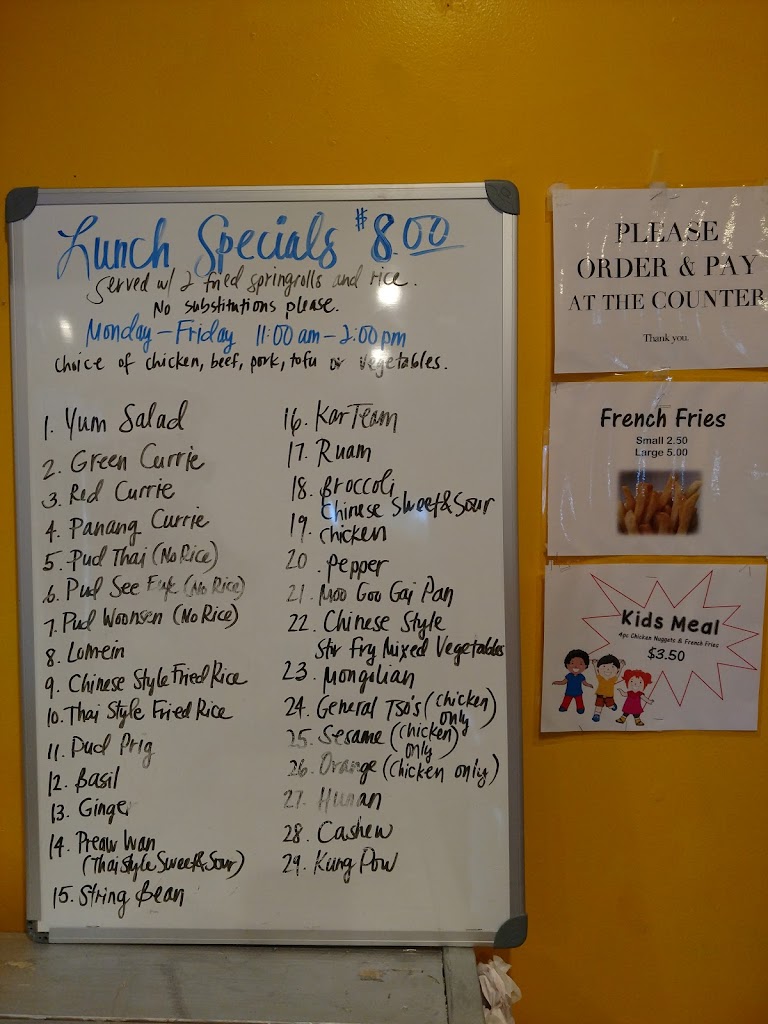 Lunch Specials $8.00
Served w/ 2 fried springrolls and rice.
No substitutions please.
Monday-Friday 11:00 am-2:00pm
Choice of chicken, beef, pork, tofu or vegetables.
1. Yum Salad
2. Green Currie
3. Red Currie
4. Panang Currie
5. Pud Thai (No Rice)
6. Pud See Euk (No Rice)
7. Pud Woonsen (No Rice)
8. Lomein
9. Chinese Style Fried Rice
10. Thai Style Fried Rice
11. Pud Prig
12. Basil
13. Ginger
14. Preaw Wan
(Thai Style Sweet & Sour)
15. String Bean
16. Kar Team
17. Ruam
18. Broccoli
Chinese Sweet & Sour
19. Chicken
20. Pepper
21. Moo Goo Gai Pan
22. Chinese Style
Stir Fry Mixed Vegetables
23. Mongilian
24. General Tso's (chicken
only)
25. Sesame (chicken)
only
26. Orange (chicken only)
27. Hunan
28. Cashew
29. Kung Pow
PLEASE
ORDER & PAY
AT THE COUNTER
Thank you.
French Fries
Small 2.50
Large 5.00
Kids Meal
4pc Chicken Nuggets & French Fries
$3.50